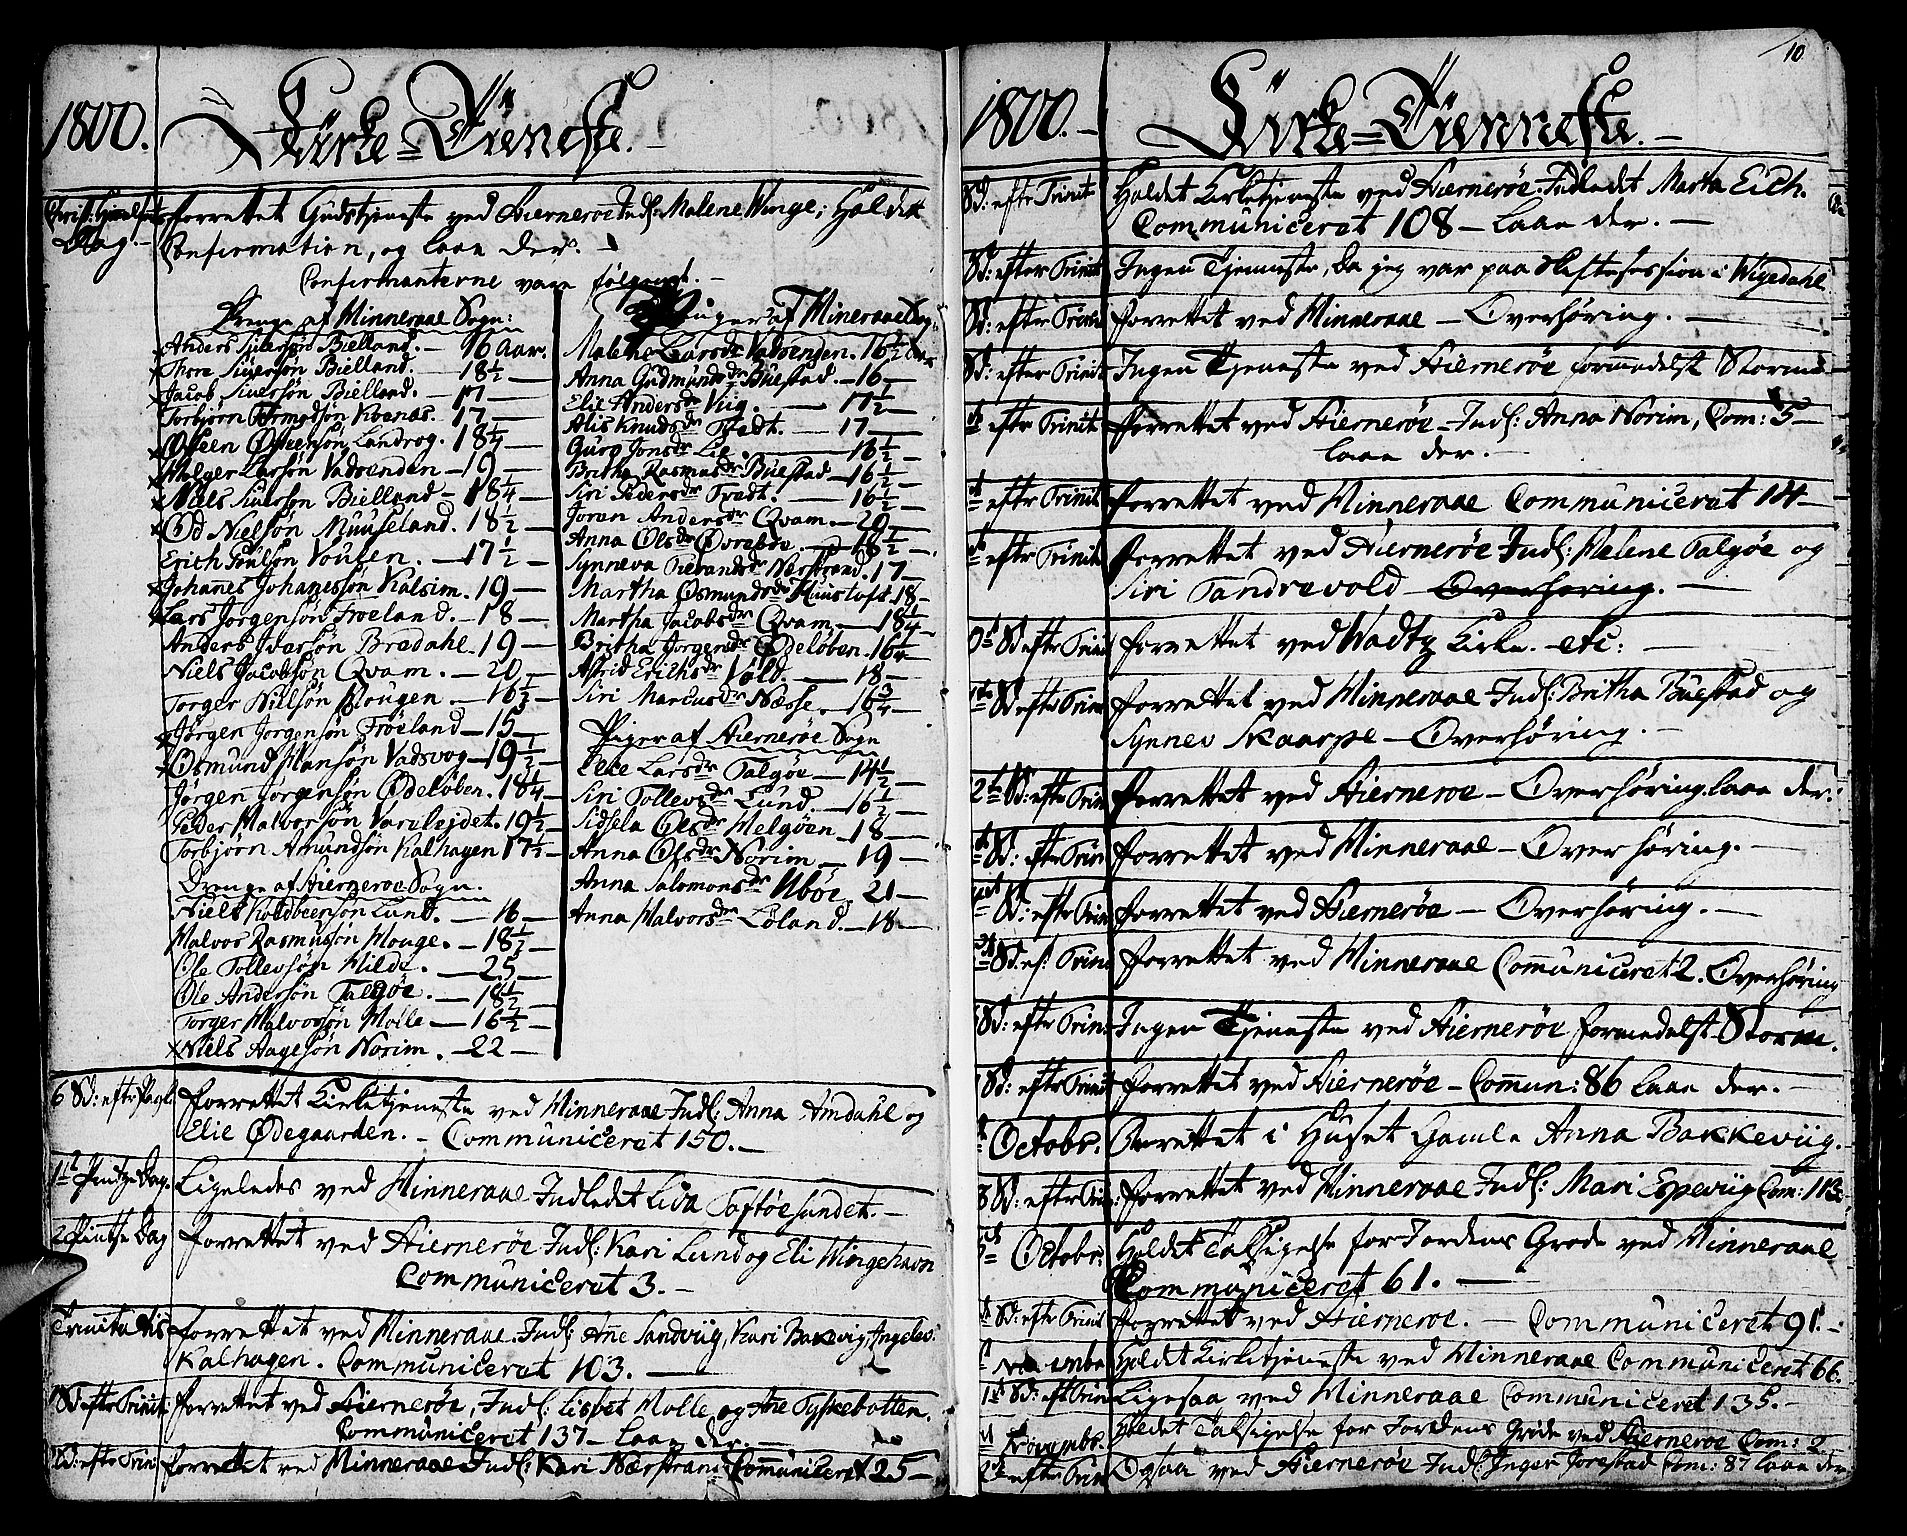 1800.
Kirke=Tieneste.
Christi Himelfarts forrettet Gudstjeneste ved Hiernerøe Indl: Malene Winge; Holdet
Dag. Confirmation, og laae der.
Confirmanterne vare følgende.
Drenge af Minneraae Sogn:
Anders Siversøn Bielland. - 16 Aar.
Thore Siversøn Bielland. - 18½
Jacob Siversøn Bielland. - 17
Torbjørn Koenas. 17
Østeen Østeensøn Landrog. 18¼
Holger Larsøn Vadsenden - 19
Niels Siversøn Bielland - 18¼
Od Nielsøn Muuseland. 18½
Erich Poulsøn Vougen. - 17½
Johannes Johanessøn Kalsim. 19
Lars Jørgensøn Frøeland. - 18
Anders Iversøn Bredahl. 19
Niels Jacobsøn Qvam. - 20
Torger Nielsøn Hougen. - 16½
Jørgen Jørgensøn Frøeland - 15
Osmund Hansøn Vadsvog - 19½
Jørgen Jørgensøn Ødeløben. 18¼
Peder Halvorsøn Varslejdet. 19½
Torbjørn Amundsøn Kalhagen 17½
Drenge af Hiernerøe Sogn.
Niels Koldbeensøn Lund. - 18
Halvor Rasmusøn Houge. - 18½
Ole Tollevsøn Hilde. - 25
Ole Andersøn Talgøe. - 18½
Torger Halvorsøn Molle - 16½
Niels Aagesøn Norim. - 22
Piger af Mineraae Sogn
Malena Larsdr Vadsenden. 16½ Aar
Anna Gudmundsdr Buestad. - 16
Elie Andersdr Viig. - 17½
Alis Knudsdr Tvedt. - 17
Guro Jonsdr Lie - 16½
Britha Rasmusdr Buestad - 16½
Siri Pedersdr Tvedt. - 16½
Joren Andersdr Qvam. - 20
Anna Olsdr Øvrebøe. - 18½
Synneva Tierandsdr Nærstrand. 17
Martha Osmundsdr Huustoft. 18
Martha Jacobsdr Qvam - 18¼
Britha Jørgensdr Ødeløben. 16½
Astrid Erichsdr Vold. - 18
Siri Marcusdr Næsse. - 16¾
Piger af Hiernerøe Sogn
Elie Larsdr Talgøe - 14½
Siri Tollevsdr Lund. - 16½
Sidsela Olsdr Helgøen - 18
Anna Olsdr Norim - 19
Anna Salomonsdr Ubøe. 21
Anna Halvorsdr Løland. - 18
6 Sd: eftr Pask. forrettet Kirketjeneste ved Minneraae Indl: Anna Amdahl og
Elie Ødegaarden. - Communiceret 150.
1te Pintze Dag. Ligeledes ved Minneraae Indledet Lida Toftøesundet.
2 Pintse Dag forrettet ved Hiernerøe Indl: Kari Lund og Eli Wingehavn
Communiceret 3.
Trinitatis forrettet ved Minneraae Indl: Ane Sandviig, Kari Bakevig, Ingeles
Kalhagen. Communiceret 103.
1 Sd: eftr Trinit: forrettet ved Hiernerøe, Indl: Lisbet Molle og Ane Tyskebotten.
Communiceret 137 - laae der.
2 Sd: eftr Trinit forrettet ved Minneraae Indl: Kari Nærstrand Communiceret 25
10
1800.
Kirke=Tienneste.
Sd: eftr Trinit Holdet Kirketjeneste ved Hiernerøe. Indledet Marta Eich.
Communiceret 108 - laae der.
Sd: efter Trinit Ingen Tjenneste, da jeg var paa Skiftesession i Wigedahl
Sd: eftr Trinit forrettet ved Minneraae - Overhøring.
Sd: efter Trinit Ingen Tjeneste ved Hiernerøe formedelst Storm
eftr Trinit forrettet ved Hiernerøe - Indl: Anna Norim, Com: 5
laae der.
eftr Trinit forrettet ved Minneraae Communiceret 14
eftr Trinit forrettet ved Hiernerøe Indl: Malene Talgøe og
Siri Tandrevold Overhøring.
Sd eftr Trinit forrettet ved Wadtz Kirke. etc:
Sd eftr Trinit forrettet ved Minneraae Indl: Britha Buestad og
Synnev Skaarpe - Overhøring.
2te Sd: eftr Trin forrettet ved Hiernerøe - Overhøring, laae der.
Sd: eftr Trin forrettet ved Minneraae - Overhøring.
Sd: eftr Trin forrettet ved Hiernerøe - Overhøring.
Sd. ef: Trin forrettet ved Minneraae Communiceret 2. Overhøring
Sd: eftr Trin Ingen Tjeneste ved Hiernerøe formedelst Storm.
Sd: eftr Trinit forrettet ved Hiernerøe - Commun: 86 laae der.
Octobr. Berettet i Huset Gamle Anna Bakkeviig.
8 Sd: eftr Trin: forrettet ved Minneraae Indl: Mari Espeviig Com: 113
Octobr. Holdet Taksigelse for Jordens Grøde ved Minneraae
Communiceret 61.
Sd: eftr Trinit forrettet ved Hiernerøe. - Communiceret 91.
Holdet Kirketjeneste ved Minneraae Communiceret 66.
Sd: eftr Trin Ligesaa ved Minneraae Communiceret 135.
Novembr. Holdet Taksigelse for Jordens Grøde ved Hiernerøe Com: 2
eftr Trin Ogsaa ved Hiernerøe Indl: Inger Jørestad Com: 87 laae der